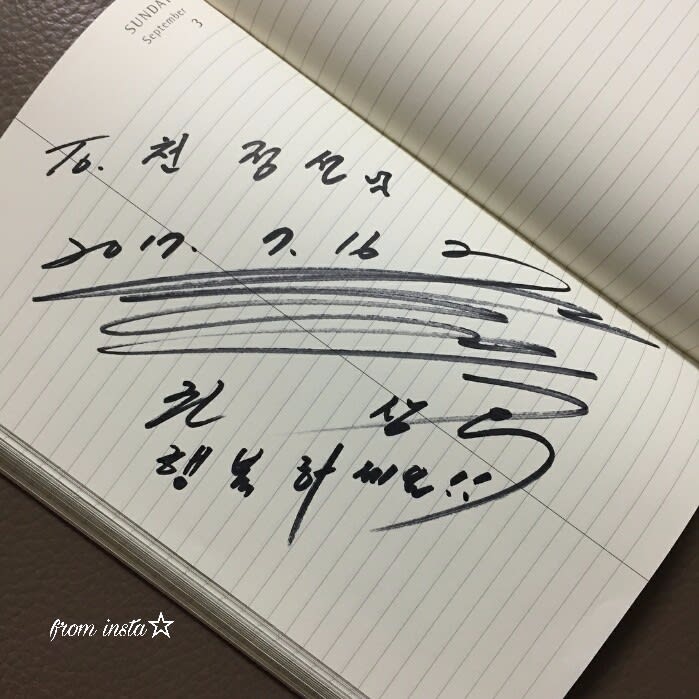 SUNDAY
September 3
To. 천 정 선 ☆
2017. 7. 16
항 상
행 복 하 세요!!
from insta☆